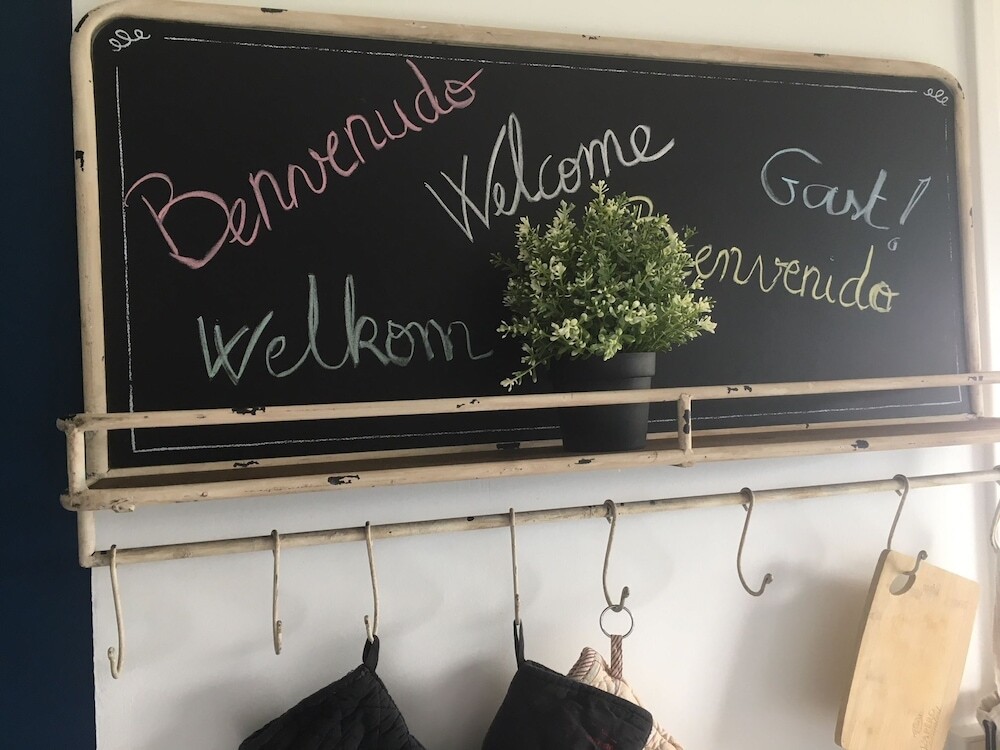 Benvenudo
Welcome
Gast!
Benvenido
Welkom